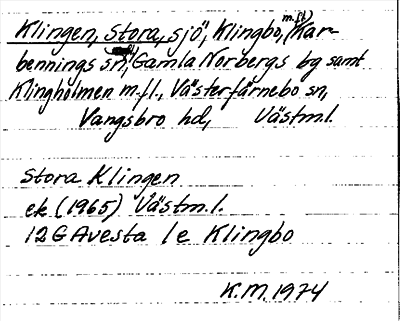 Klingen, Stora, sjö, Klingbo, (m.fl.) Kar-
bennings sn, Gamla Norbergs bg samt
Klingholmen m.fl., Västerfärnebo sn,
Vangsbro hd, Västm.l.
Stora Klingen
ek (1965) Västm.l.
12G Avesta 1e Klingbo
K.M. 1974